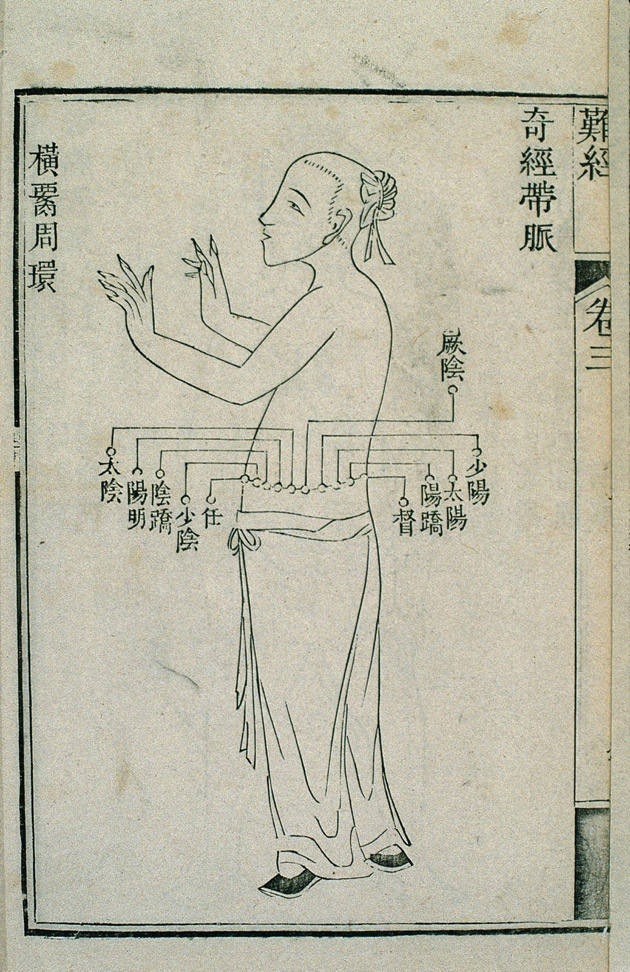 難經
卷三
奇經帶脈
厥陰
少陽
太陽
陽蹻
督
任
少陰
陰蹻
陽明
太陰
橫 周環